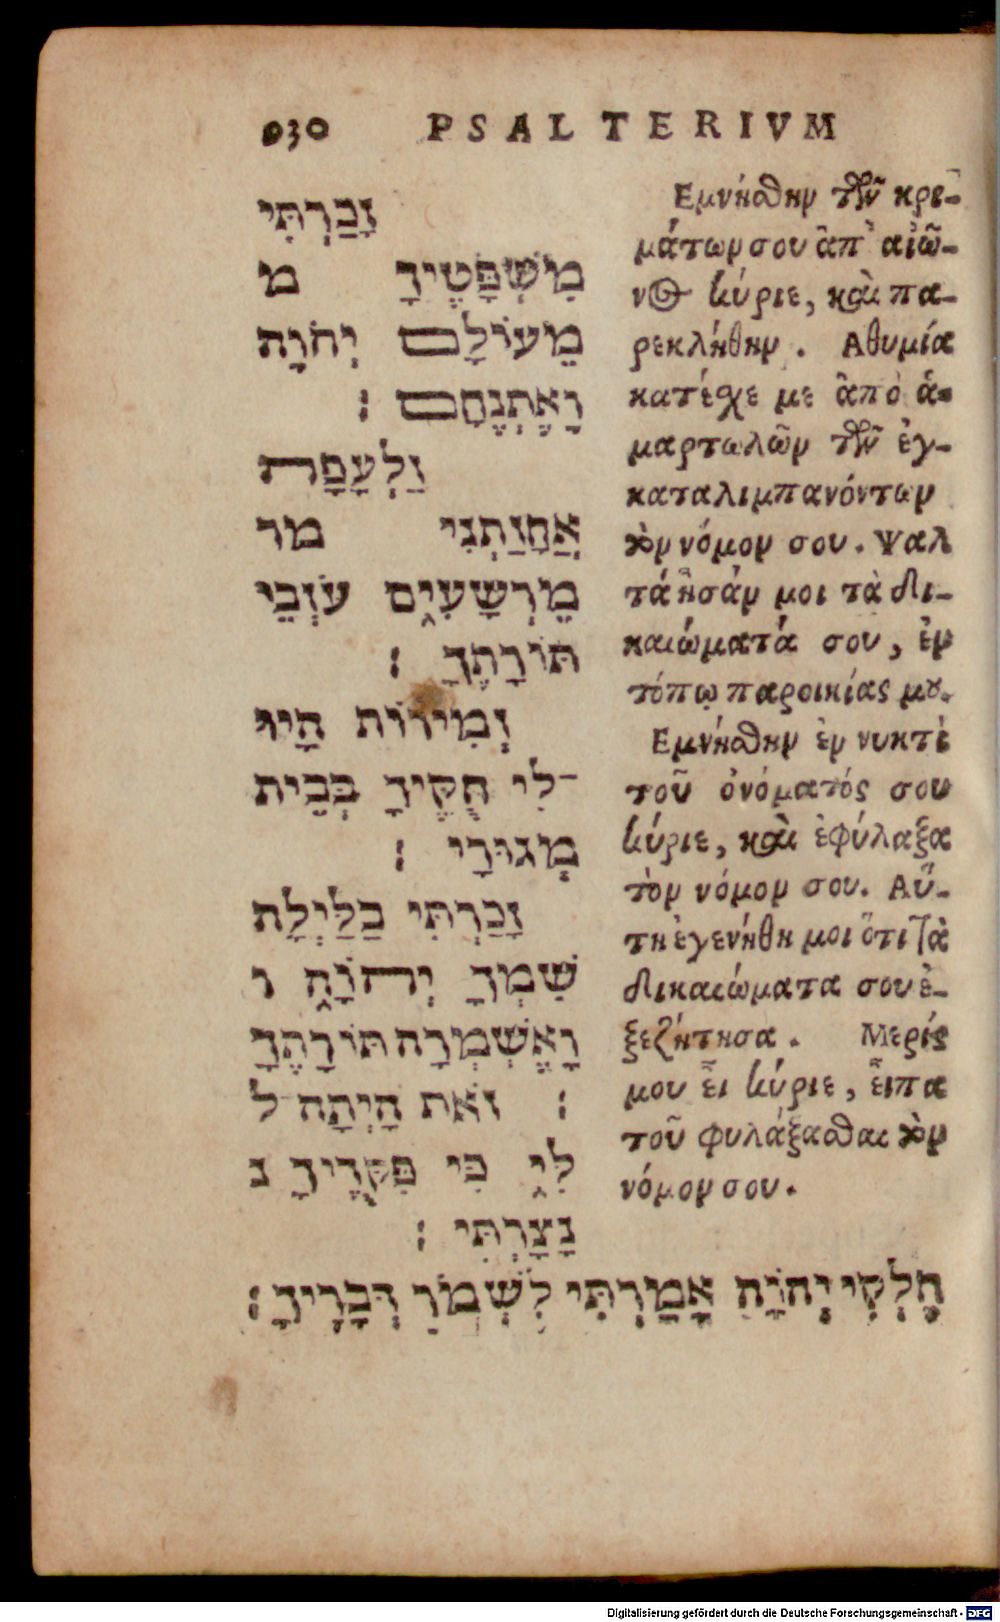 030 PSALTERIVM
זָכַרְתִּי
מִשְׁפָּטֶיךָ מ
מֵעוֹלָם יְהֹוָה
וָאֶתְנֶחָם :
זַלְעָפָה
אֲחָזַתְנִי מר
מֵרְשָׁעִים עֹזְבֵי
תּוֹרָתֶךָ :
זְמִירוֹת הָיוּ
לִי חֻקֶּיךָ בְּבֵית
מְגוּרָי :
זָכַרְתִּי בַלַּיְלָה
שִׁמְךָ יְהוָֹה ו
וָאֶשְׁמְרָה תּוֹרָתֶךָ
: זֹאת הָיְתָה ל
לִּי כִּי פִקֻּדֶיךָ נ
נָצָרְתִּי :
חֶלְקִי יְהוָֹה אָמַרְתִּי לִשְׁמֹר דְּבָרֶיךָ :
Εμνήσθην τῶν κρι-
μάτων σου ἂπ᾽ αἰῶ-
νος κύριε, καὶ πα-
ρεκλήθην. Αθυμία
κατέσχε με ἂπὸ ἁ-
μαρτωλῶν τῶν ἐγ-
καταλιμπανόντων
τὸν νόμον σου. Ψαλ
τάἦσάν μοι τὰ δι-
καιώματά σου, ἐν
τόπῳ παροικίας μου.
Εμνήσθην ἐν νυκτὶ
τοῦ ὀνόματός σου
κύριε, καὶ ἐφύλαξα
τὸν νόμον σου. Αὕ-
τη ἐγενήθη μοι ὅτι τὰ
δικαιώματα σου ἐ-
ξεζήτησα. Μερίς
μου εἶ κύριε, εἶπα
τοῦ φυλάξασθαι τὸν
νόμον σου.
Digitalisierung gefördert durch die Deutsche Forschungsgemeinschaft - DFG